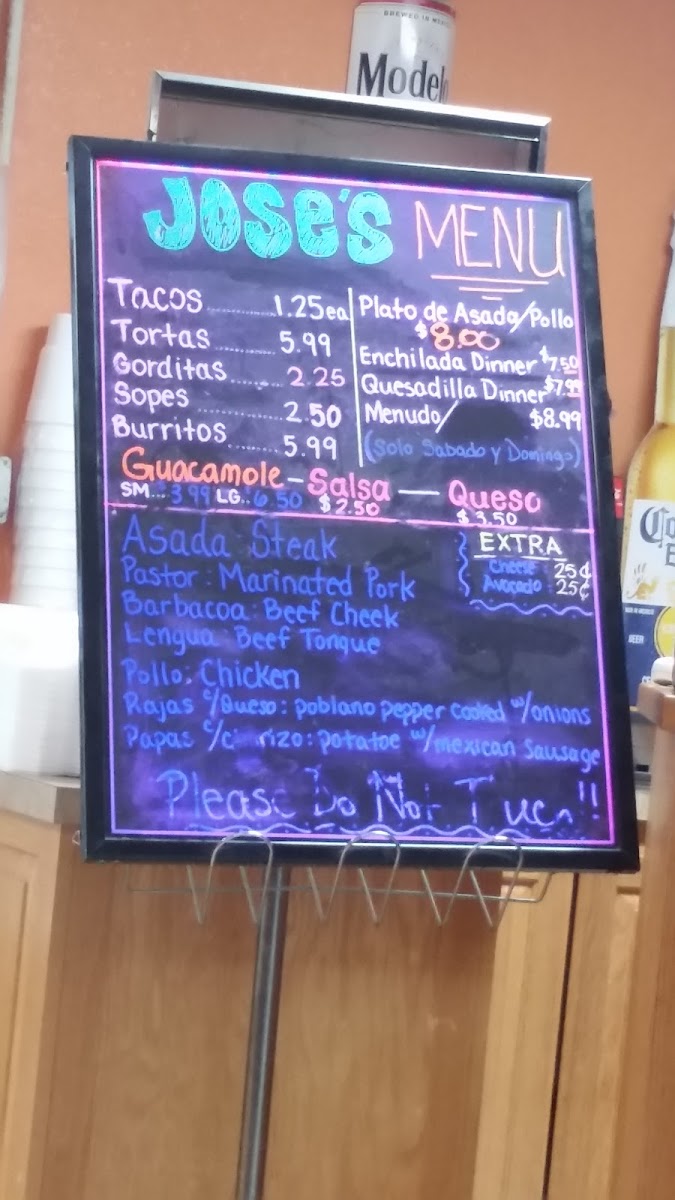 BREWED IN MEXICO
Modelo
JOSE'S MENU
Tacos ........ 1.25ea
Tortas ........ 5.99
Gorditas ...... 2.25
Sopes ........ 2.50
Burritos ........ 5.99
Plato de Asada/Pollo
$8.00
Enchilada Dinner $7.50
Quesadilla Dinner $7.99
Menudo/ $8.99
(Solo Sabado y Domingo)
Guacamole - Salsa — Queso
SM... $3.99 LG.. 6.50 $2.50 $3.50
EXTRA
Cheese 25¢
Avocado 25¢
Asada Steak
Pastor: Marinated Pork
Barbacoa: Beef Cheek
Lengua Beef Tongue
Pollo: Chicken
Rajas c/Queso: poblano pepper cooked w/onions
Papas c/c rizo: potatoe w/mexican Sausage
Please Do Not T uch!!
BEER